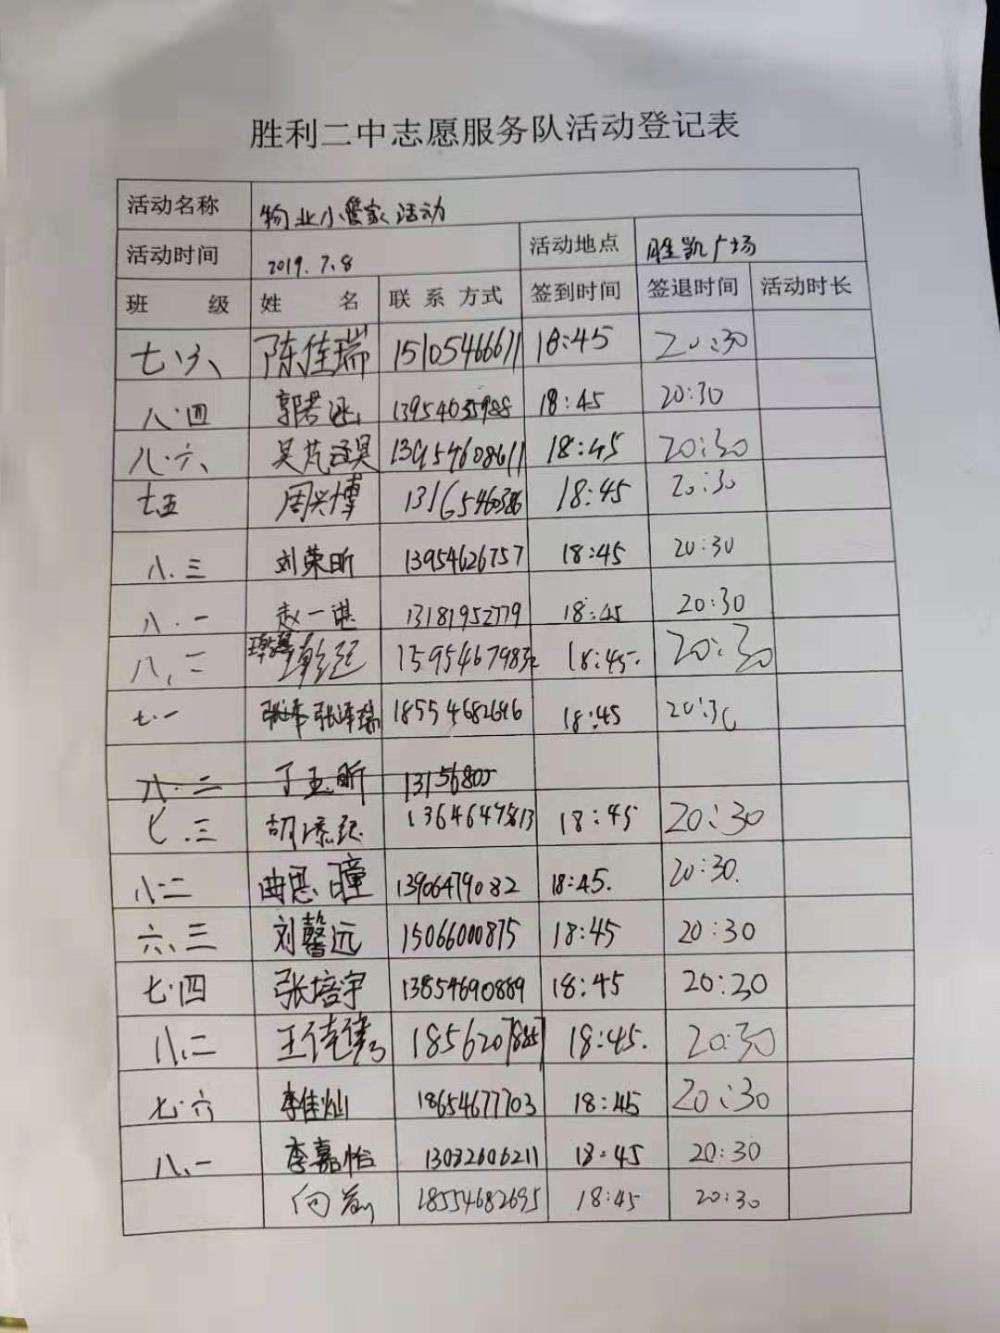 胜利二中志愿服务队活动登记表
活动名称 物业小管家活动
活动时间 2019.7.8 活动地点 胜凯广场
班 级 姓 名 联系方式 签到时间 签退时间 活动时长
七.六 陈佳瑞 15105466611 18:45 20:30
八.四 郭若涵 18:45 20:30
八.六 吴 13954608611 18:45 20:30
七.五 周兴博 18:45 20:30
八.三 刘荣昕 13954626757 18:45 20:30
八.一 赵一湛 13181952779 18:45 20:30
八.二 18:45. 20:30
七.一 张泽瑞 18554682696 18:45 20:30
八.二 丁玉昕
七.三 胡 18:45 20:30
八.二 曲思瞳 13906479082 18:45. 20:30.
六.三 刘馨远 15066000875 18:45 20:30
七.四 张培宇 13854690889 18:45 20:30
八.二 王佳 18:45. 20:30
七.六 李佳灿 18654677703 18:45 20:30
八.一 李嘉怡 13082606211 18:45 20:30
18554682695 18:45 20:30